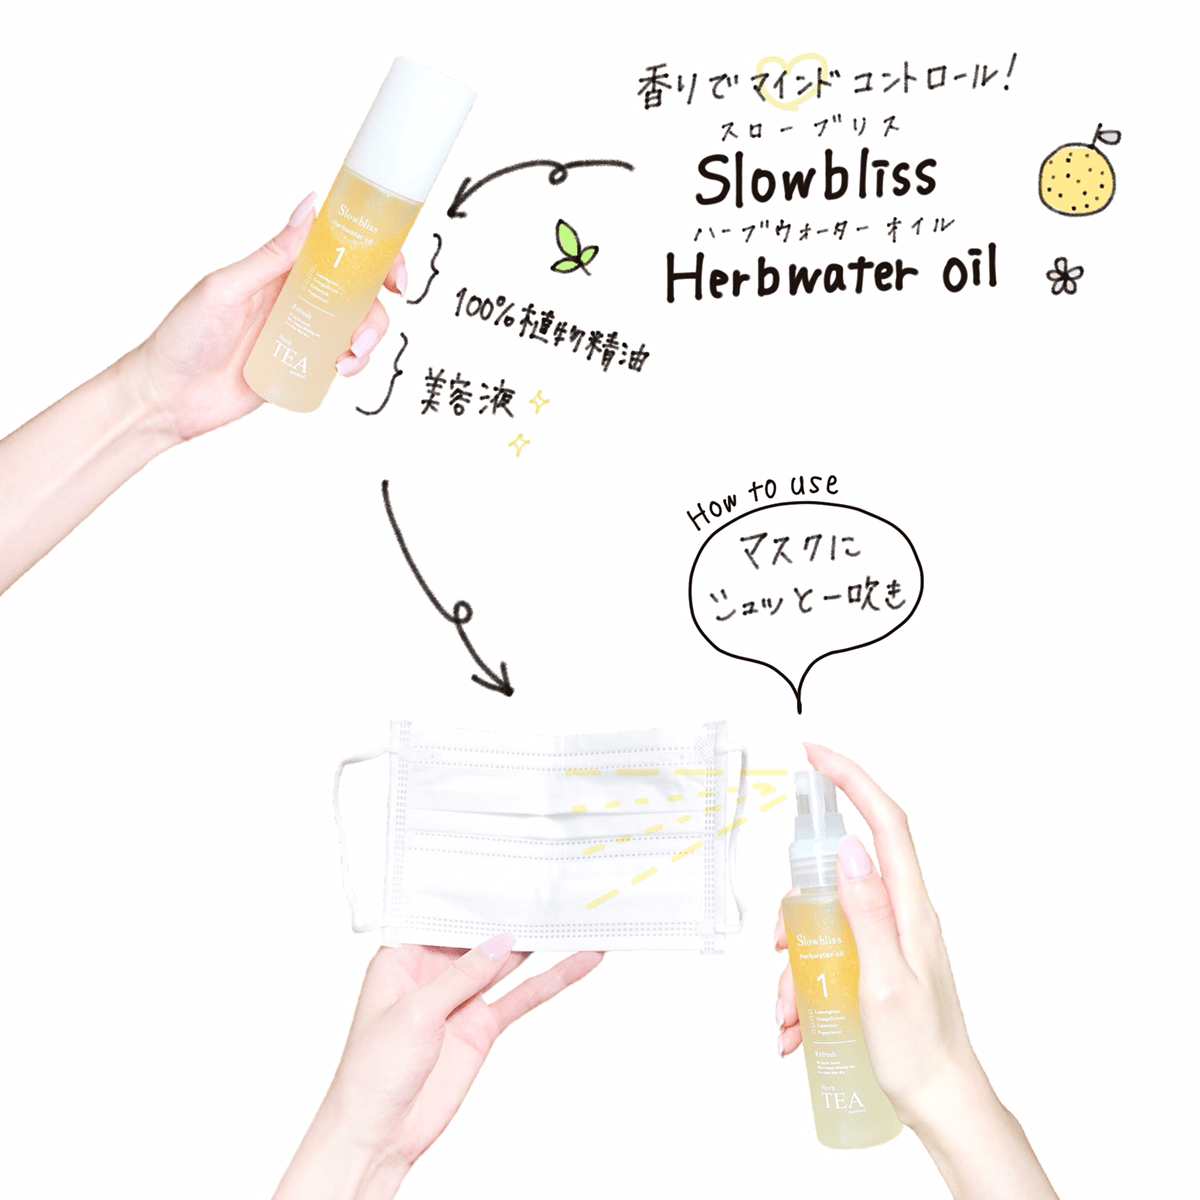 香りでマインドコントロール!
スローブリス
Slowbliss
ハーブウォーターオイル
Herbwater oil
100%植物精油
美容液
Slowbliss
Herbwater oil
1
Refresh
Herb
TEA
How to use
マスクに
シュッと一吹き
Slowbliss
Herbwater oil
1
Lemongrass
Orangeflower
Calendula
Peppermint
Refresh
Herb
TEA